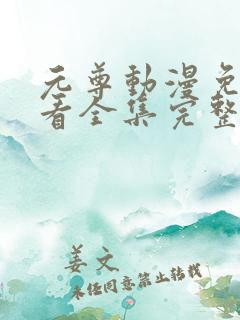 元尊動漫免
看全集完整
姜文
未经同意禁止转载